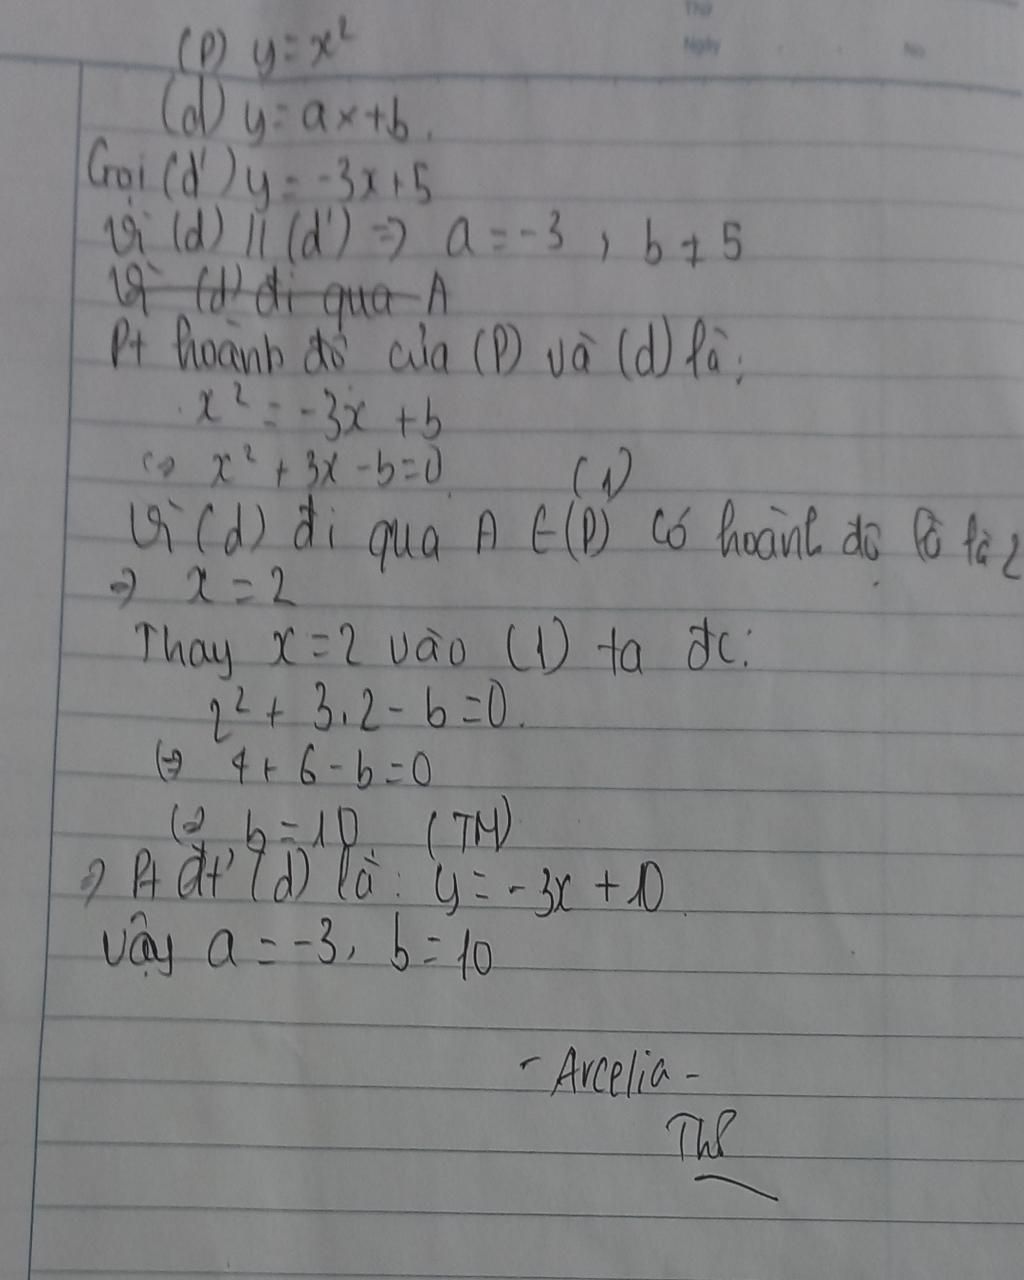 Thứ
Ngày No
(P) y = x²
(d) y = ax + b.
Gọi (d') y = -3x + 5
Vì (d) // (d') => a = -3, b ≠ 5
Vì (d) đi qua A
Pt hoành độ của (P) và (d) là:
x² = -3x + b
<=> x² + 3x - b = 0 (1)
Vì (d) đi qua A ∈ (P) có hoành độ là 2
=> x = 2
Thay x = 2 vào (1) ta đc:
2² + 3.2 - b = 0.
<=> 4 + 6 - b = 0
<=> b = 10 (TM)
=> Pt đt' (d) là: y = -3x + 10
Vậy a = -3, b = 10
- Arcelia -